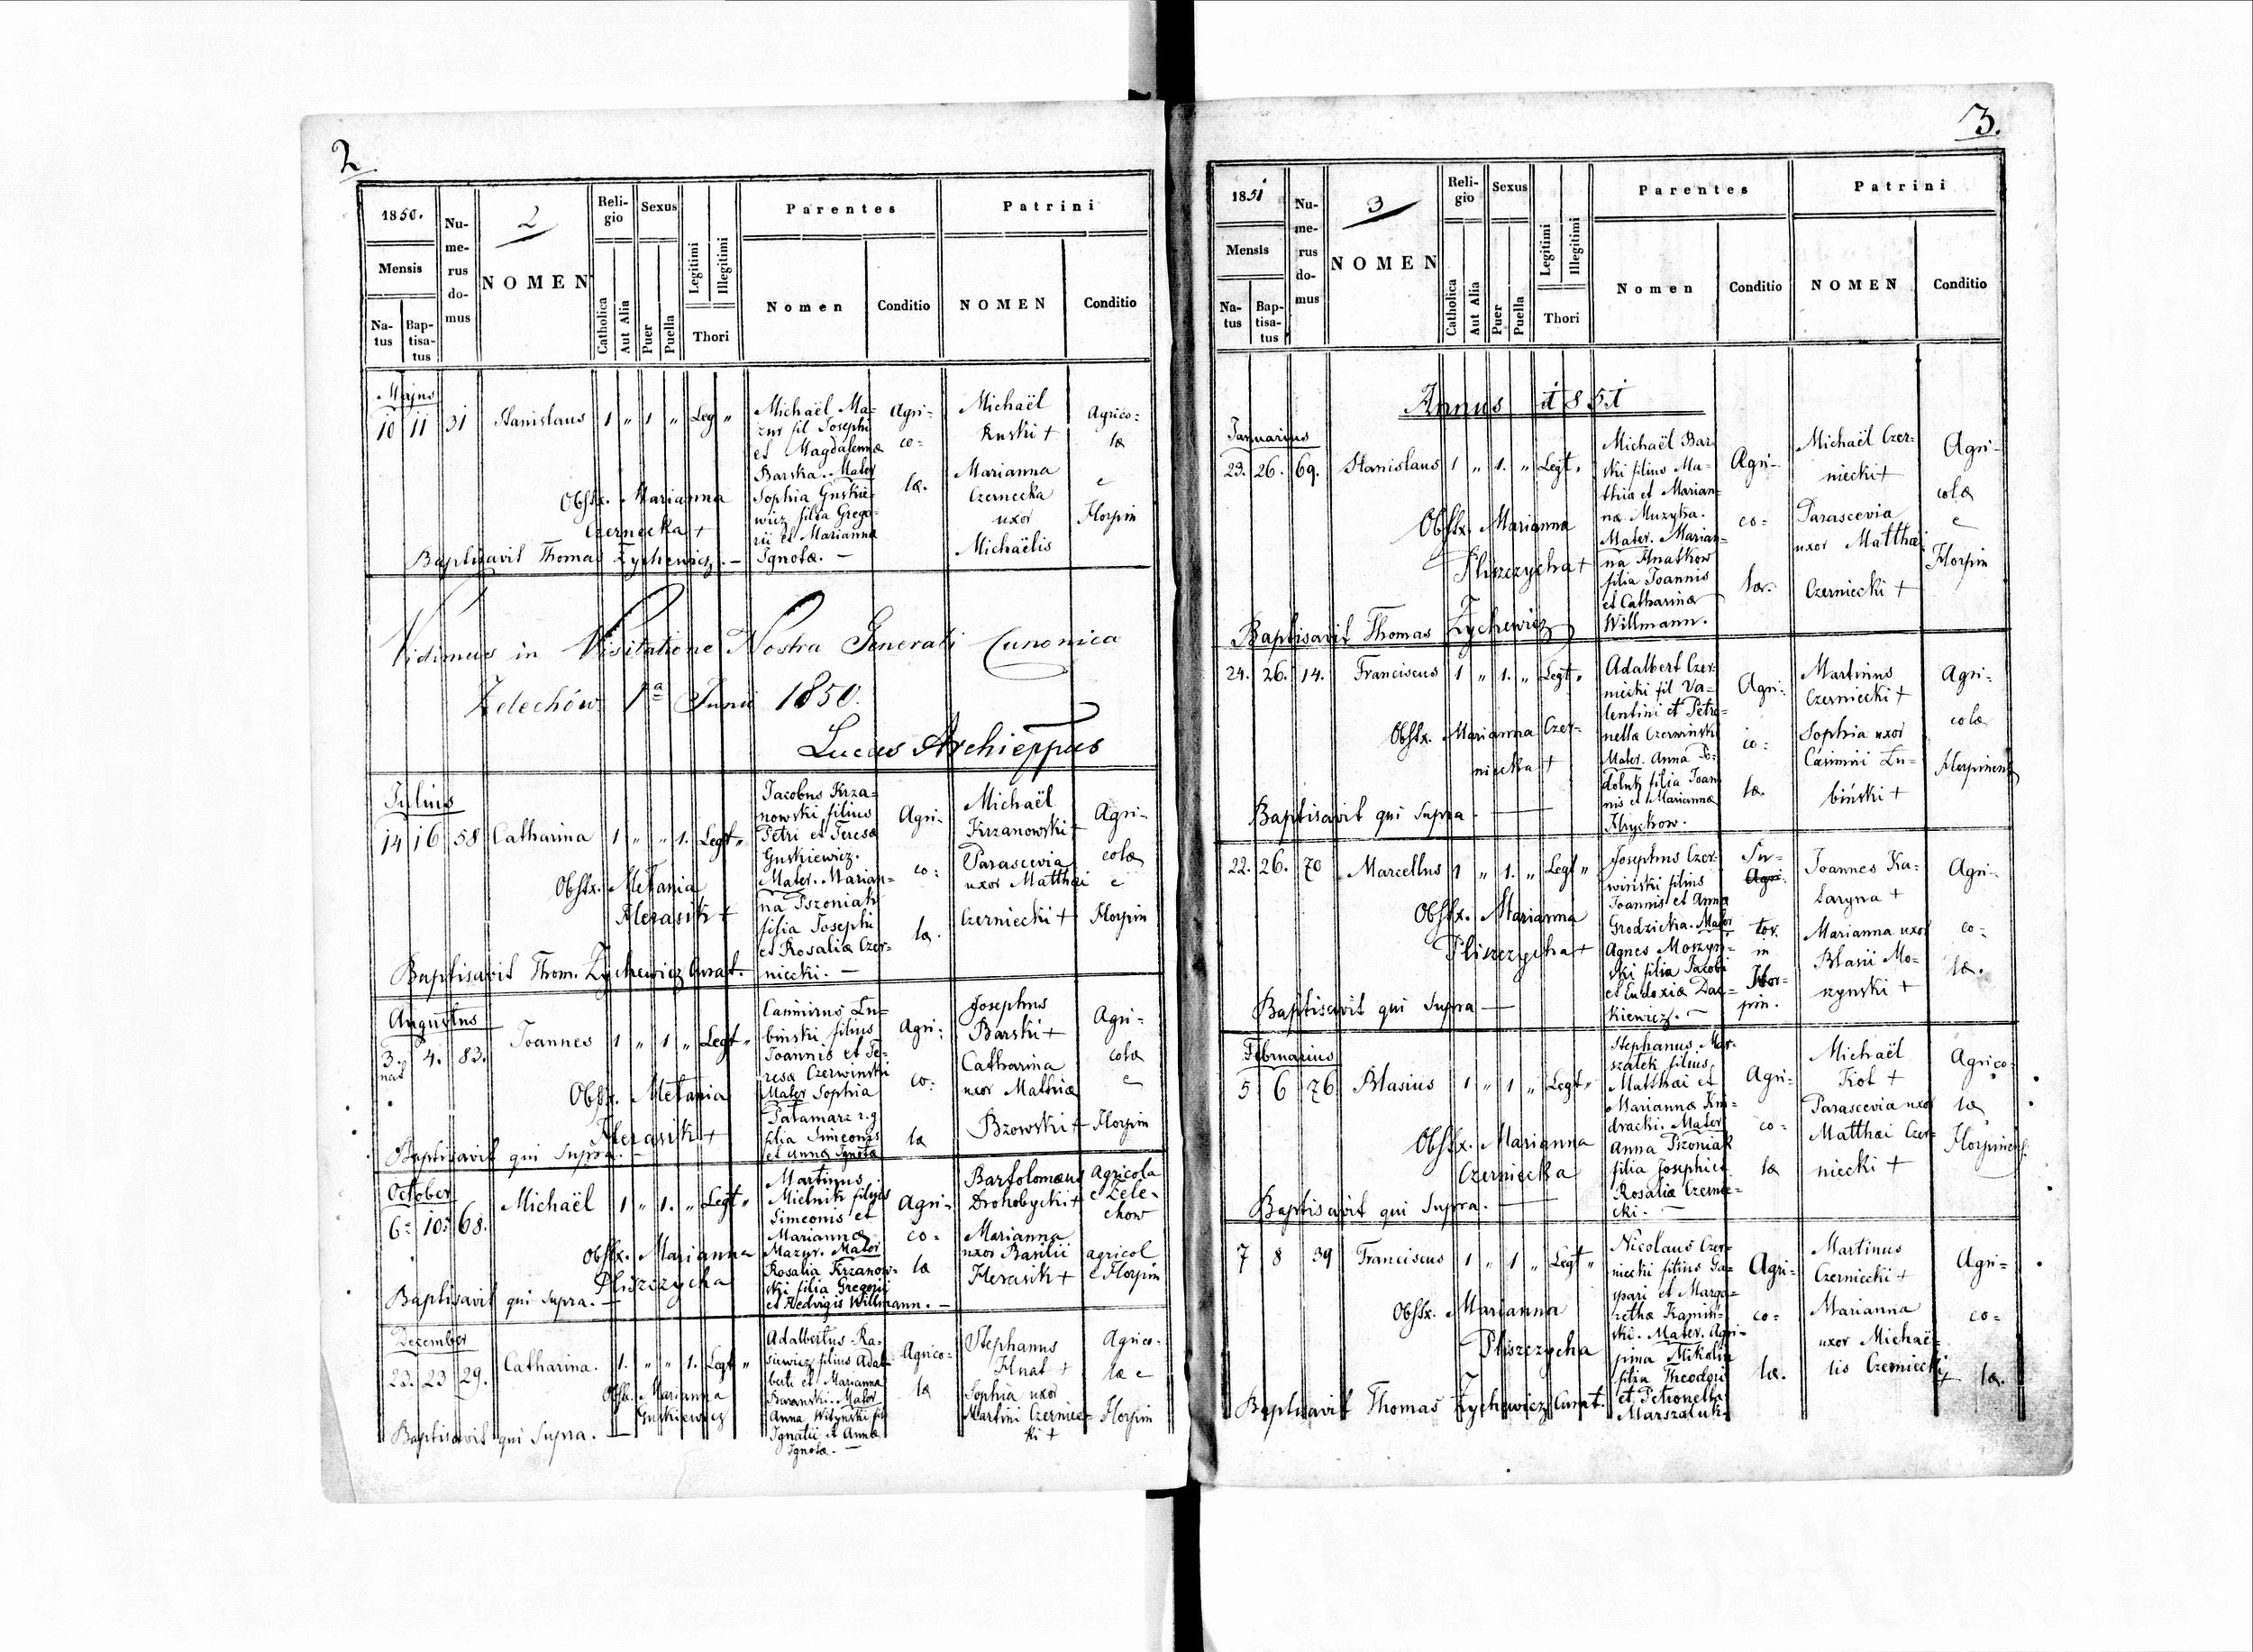 2
1850.
Mensis
Na-
tus
Bap-
tisa-
tus
Nu-
me-
rus
do-
mus
2
NOMEN
Reli-
gio
Catholica
Aut Alia
Sexus
Puer
Puella
Legitimi
Illegitimi
Thori
Parentes
Nomen
Conditio
Patrini
NOMEN
Conditio
Majus
10 11 31 Stanislaus 1 " 1 " Leg "
Michaël Ma-
zur fil Josephi
et Magdalennæ
Barska. Mater
Sophia Guskie-
wicz filia Grego-
rii et Marianna
Ignotæ. —
Agri-
co-
læ.
Michaël
Ruski +
Marianna
Czernecka
uxor
Michaëlis
Agrico-
læ
e
Horpin
Obstx. Marianna
Czernecka +
Baptisavit Thomas Zychewicz. —
Vidimus in Visitatione Nostra Generali Canonica
Zelechów 1ª Junii 1850.
Lucas Archieppus
Julius
14 16 58 Catharina 1 " " 1. Legt "
Jacobus Krza-
nowski filius
Petri et Teresæ
Guskiewicz.
Mater. Marian-
na Pszoniak
filia Josephi
et Rosaliæ Czer-
niecki. —
Agri-
co-
la.
Michaël
Krzanowski +
Parascevia
uxor Matthæi
Czerniecki +
Agri-
colæ
e
Horpin
Obstx. Melania
Herasik +
Baptisavit Thom. Zychewicz Curat.
Augustus
3. 4. 83. Joannes 1 " 1 " Legt "
nat
Casimirus Lu-
binski filius
Joannis et Te-
resæ Czerwinski
Mater Sophia
Patamarz r.g
filia Simeonis
et Annæ Ignotæ
Agri-
co-
la
Josephus
Barski +
Catharina
uxor Mathiæ
Bzowski +
Agri-
colæ
e
Horpin
Obstx. Melania
Herasik +
Baptisavit qui Supra. —
October
6. 10. 68. Michaël 1 " 1. " Legt "
Martinus
Mielnik filius
Simeonis et
Mariannæ
Mazur. Mater
Rosalia Krzanow-
ski filia Gregorii
et Hedvigis Willmann. —
Agri-
co-
la
Bartolomæus
Drohobycki +
Marianna
uxor Basilii
Herasik +
Agricola
e Zele-
chow
agricol
e Horpin
Obstx. Marianna
Pliszczycha
Baptisavit qui Supra. —
December
23. 23 29. Catharina. 1. " " 1. Legt "
Adalbertus Ra-
siewicz filius Adal-
berti et Marianna
Baranski. Mater
Anna Witynski fil
Ignatii et Annæ
Ignotæ. —
Agrico-
la
Stephanus
Hnat +
Sophia uxor
Martini Czerniec-
ki +
Agrico-
læ e
Horpin
Obstx. Marianna
Guskiewicz
Baptisavit qui Supra. —
3.
1851
Mensis
Na-
tus
Bap-
tisa-
tus
Nu-
me-
rus
do-
mus
3
NOMEN
Reli-
gio
Catholica
Aut Alia
Sexus
Puer
Puella
Legitimi
Illegitimi
Thori
Parentes
Nomen
Conditio
Patrini
NOMEN
Conditio
Annus 1851
Januarius
23. 26. 69. Stanislaus 1 " 1. " Legt "
Michaël Bar-
ski filius Ma-
thiæ et Marian-
næ Muzyka.
Mater. Marian-
na Hnatkow
filia Joannis
et Catharinæ
Willmann.
Agri-
co-
læ.
Michaël Czer-
niecki +
Parascevia
uxor Matthæi
Czerniecki +
Agri-
colæ
e
Horpin
Obstx. Marianna
Pliszczycha +
Baptisavit Thomas Zychewicz
24. 26. 14. Franciscus 1 " 1. " Legt "
Adalbert Czer-
niecki fil Va-
lentini et Petro-
nella Czerwinski
Mater. Anna Po-
doluk filia Joan-
nis et Mariannæ
Hryckow.
Agri-
co-
la.
Martinus
Czerniecki +
Sophia uxor
Casimiri Lu-
biński +
Agri-
colæ
Horpinens
Obstx. Marianna Czer-
niecka +
Baptisavit qui Supra. —
22. 26. 70 Marcellus 1 " 1. " Legt "
Josephus Czer-
winski filius
Joannis et Annæ
Grodzicka. Mater
Agnes Moszyń-
ski filia Jacobi
et Eudoxiæ Dac-
kiewicz. —
Su-
Agri-
tor.
in
Hor-
pin.
Joannes Ka-
taryna +
Marianna uxor
Blasii Mo-
szynski +
Agri-
co-
læ.
Obstx. Marianna
Pliszczycha +
Baptisavit qui Supra —
Februarius
5 6 76 Blasius 1 " 1 " Legt "
Stephanus Mar-
szalek filius
Matthæi et
Mariannæ Kra-
dracki. Mater
Anna Pszoniak
filia Josephi et
Rosaliæ Czernie-
cki. —
Agri-
co-
la
Michaël
Kot +
Parascevia uxor
Matthæi Czer-
niecki +
Agrico-
læ
Horpinens.
Obstx. Marianna
Czerniecka
Baptisavit qui Supra. —
7 8 39 Franciscus 1 " 1 " Legt "
Nicolaus Czer-
niecki filius Ga-
spari et Marga-
rethæ Kamiń-
ski. Mater. Agri-
pina Mikolin
filia Theodori
et Petronella
Marszaluk.
Agri-
co-
la.
Martinus
Czerniecki +
Marianna
uxor Michaë-
lis Czerniecki +
Agri-
co-
læ.
Obstx. Marianna
Pliszczycha
Baptisavit Thomas Zychewicz Curat.